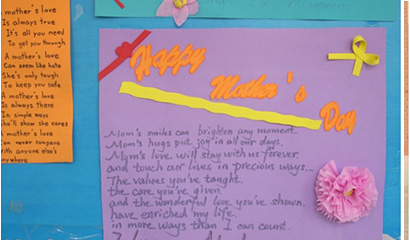 mother's love
Is always true
It's all you need
To get you through
A mother's love
Can seem like hate
She's only tough
To keep you safe
A mother's love
Is always there
In simple ways
She'll show she cares
A mother's love
can never compare
With anyone else's
Anywhere
Happy
Mother's
Day
Mom's smiles can brighten any moment.
Mom's hugs put joy in all our days.
Mom's love will stay with us forever
and touch our lives in precious ways...
The values you've taught,
the care you've given
and the wonderful love you've shown.
have enriched my life.
in more ways than I can count.